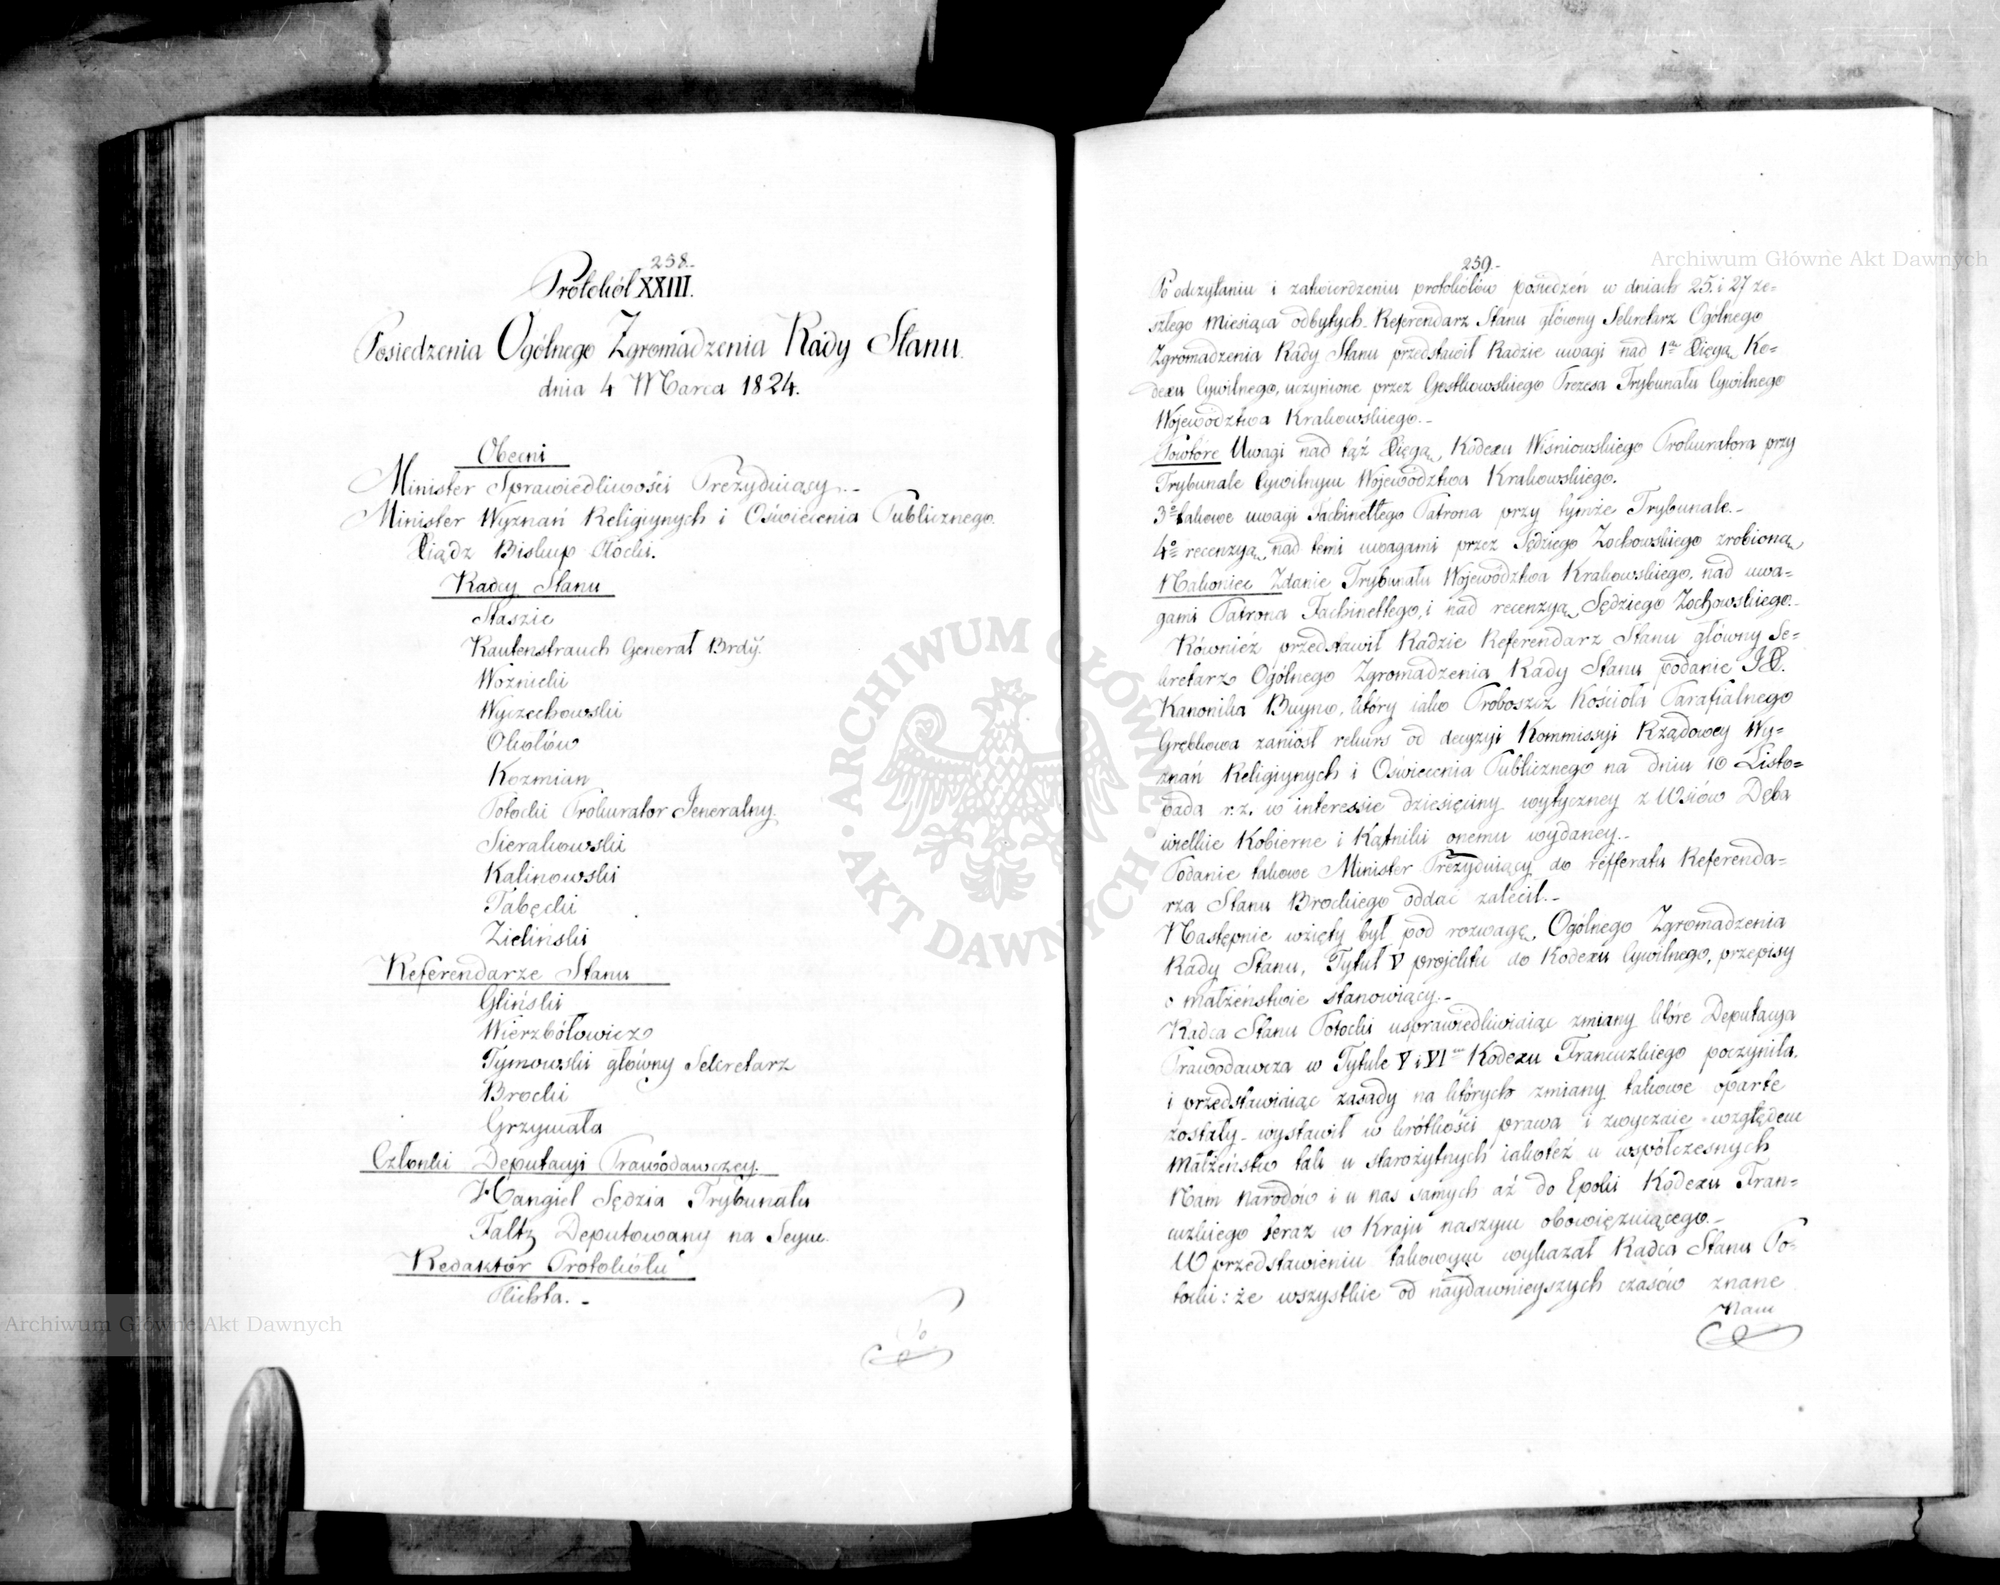 258.
Protokół XXIII.
Posiedzenia Ogólnego Zgromadzenia Rady Stanu.
dnia 4 Marca 1824.
Obecni
Minister Sprawiedliwości Prezyduiący.
Minister Wyznań Religiynych i Oświecenia Publicznego.
Xiądz Biskup Płocki.
Radcy Stanu
Staszic
Rautenstrauch Generał Brdy.
Woznicki
Wyczechowski
Okołów
Kozmian
Potocki Prokurator Jeneralny.
Sierakowski
Kalinowski
Tabęcki
Zieliński
Referendarze Stanu
Gliński
Wierzbółowicz
Tymowski główny Sekretarz
Brocki
Grzymała
Członki Deputacyi Prawodawczey.
Hangiel Sędzia Trybunału
Faltz Deputowany na Seym.
Redaktor Protokółu
Plichta. -
259.
Po odczytaniu i zatwierdzeniu protokółów posiedzeń w dniach 25. i 27 ze=
szłego Miesiąca odbytych - Referendarz Stanu główny Sekretarz Ogólnego
Zgromadzenia Rady Stanu przedstawił Radzie uwagi nad 1ą Xięgą Ko=
dexu Cywilnego, uczynione przez Gostkowskiego Prezesa Trybunału Cywilnego
Województwa Krakowskiego. -
Powtóre Uwagi nad tąż Xięgą, Kodexu Wiśniowskiego Prokuratora przy
Trybunale Cywilnym Województwa Krakowskiego.
3o takowe uwagi Jachinettego Patrona przy tymże Trybunale. -
4o recenzyą nad temi uwagami przez Sędziego Zochowskiego zrobioną,
Nakoniec Zdanie Trybunału Województwa Krakowskiego, nad uwa=
gami Patrona Jachinettego, i nad recenzyą Sędziego Zochowskiego. -
Również przedstawił Radzie Referendarz Stanu główny Se=
kretarz Ogólnego Zgromadzenia Rady Stanu podanie JX.
Kanonika Buyno, który iako Proboszcz Kościoła Parafialnego
Grębkowa zaniosł rekurs od decyzyi Kommissyi Rządowey Wy=
znań Religiynych i Oświecenia Publicznego na dniu 10 Listo=
pada r. z. w interessie dziesięciny wytyczney z Wsiów Dęba
wielkie Kobierne i Kątniki onemu wydaney. -
Podanie takowe Minister Prezyduiący do refferatu Referenda=
rza Stanu Brockiego oddać zalecił. -
Następnie wzięty był pod rozwagę Ogólnego Zgromadzenia
Rady Stanu, Tytuł V projektu do Kodexu Cywilnego, przepisy
o małżeństwie stanowiący. -
Radca Stanu Potocki usprawiedliwiaiąc zmiany które Deputacya
Prawodawcza w Tytule V i VI Kodexu Francuzkiego poczyniła.
i przedstawiaiąc zasady na których zmiany takowe oparte
zostały - wystawił w krótkości prawa i zwyczaie względem
Małżeństw tak u starożytnych iakoteż u współczesnych
Nam Narodów i u nas samych aż do Epoki Kodexu Fran=
cuzkiego teraz w Kraju naszym obowięzuiącego. -
W przedstawieniu takowym wykazał Radca Stanu Po=
tocki: że wszystkie od naydawnieyszych czasów znane
Nam
Archiwum Główne Akt Dawnych
Archiwum Główne Akt Dawnych
ARCHIWUM GŁÓWNE · AKT DAWNYCH ·